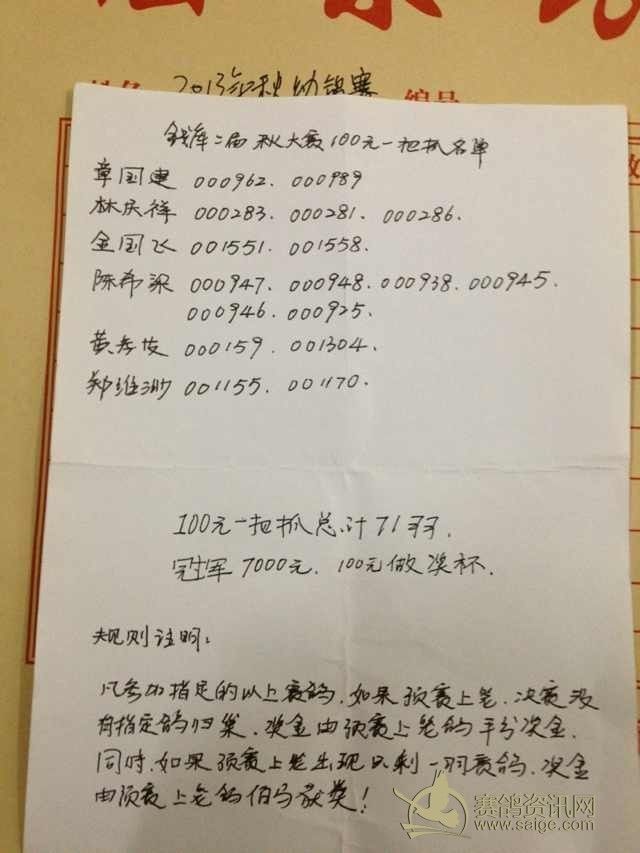 2013年秋幼鸽赛 编号
钱库二届秋大赛100元一把抓名单
章国建 000962. 000989
林庆祥 000283. 000281. 000286.
金国飞 001551. 001558.
陈希梁 000947. 000948. 000938. 000945.
000946. 000925.
黄孝发 000159. 001304.
郑维洲 001155. 001170.
100元一把抓总计71羽.
冠军7000元. 100元做奖杯.
规则注明:
凡参加指定的以上赛鸽. 如果预赛上笼. 决赛没
有指定鸽归巢. 奖金由预赛上笼鸽平分奖金.
同时. 如果预赛上笼出现只剩一羽赛鸽. 奖金
由预赛上笼鸽
赛鸽资讯网
www.saige.com